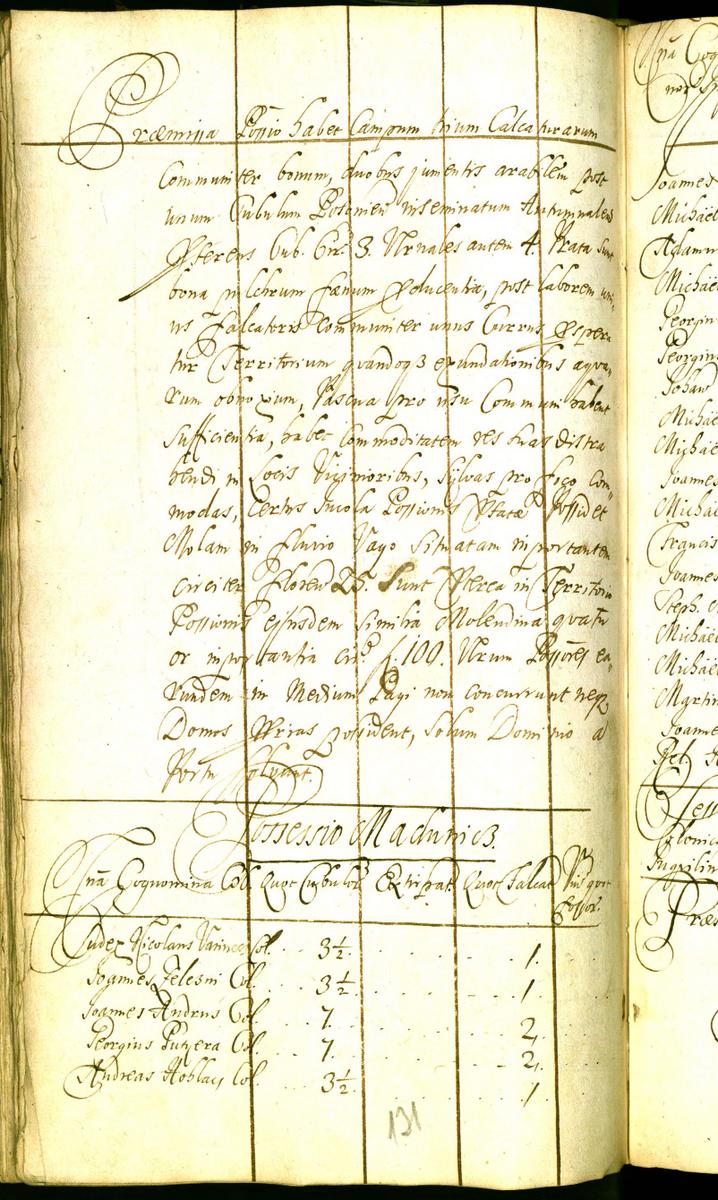 Præmissa Possio habet Campum trium Calcaturarum
Communiter bonum, duobus jumentis arabilem post
unum Cubulum Posonien inseminatum Autumnales
Referens Cub. Cir. 3. Vernales autem 4. Prata sunt
bona pulchrum fænum Producentia, post laborem uni„
us falcatoris Communiter unus Currus Pspera„
tur Territorium quandoq3 exundationibus aqua„
rum obnoxium, Pascua pro usu Communi habent
sufficientia, habet Commoditatem res suas distra
hendi in Locis Vicinioribus, Sylvas pro foco Com„
modas, Certus Incola Possionis Pfatæ Possidet
Molam in fluvio Vago Situatam importantem
circiter Floren 25. Sunt Pterea in Territorio
Possionis ejusdem similia Molendina quatu
or importantia cir. f. 100. Verum Possores ea„
rundem in Medium Pagi non concurrunt neq3
Domos Prias possident, solum Dominio à
Portu solvunt.
Possessio Madunicz.
Noīa Cognomina Col. Quot Cubulor Extirpat. Quot Falcat. Vin. quot
Fossor.
Judex Nicolaus Col. 3½. 1.
Joannes Zelesni Col. 3½. 1
Joannes Andrus Col. 7. 2
Georgius Putzera Col. 7. 2
Andreas Hoblay Col. 3½. 1
131
Joannes
Michäel
Adam
Michäel
Georgius
Georgius
Johan
Michäel
Michäel
Joannes
Michäel
Francis
Joannes
Steph.
Michäel
Michäel
Martin
Joannes
Inquilin
Præ